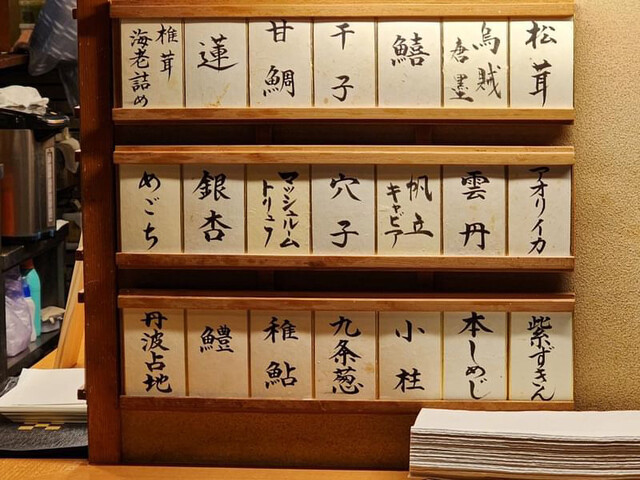 松茸
烏賊
唐墨
鱚
干子
甘鯛
蓮
椎茸
海老詰め
アオリイカ
雲丹
帆立
キャビア
穴子
マッシュルーム
トリュフ
銀杏
めごち
紫ずきん
本しめじ
小柱
九条葱
稚鮎
鱧
丹波占地